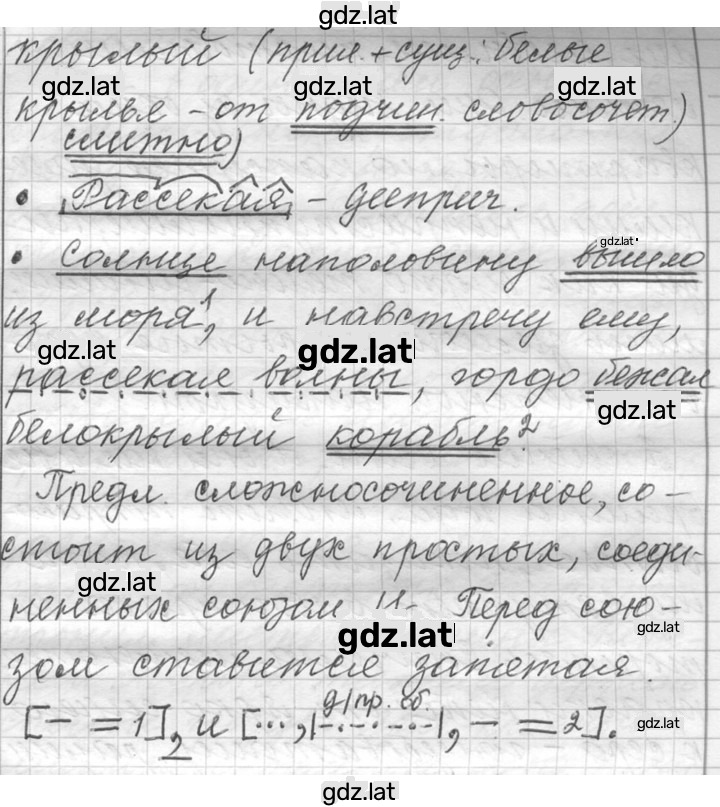 gdz.lat
крылый (прил. + сущ.: белые
gdz.lat gdz.lat gdz.lat
крылья - от подчин. словосочет.)
слитно)
• Рассекая - дееприч.
gdz.lat
• Солнце наполовину вышло
из моря¹, и навстречу ему,
gdz.lat gdz.lat
рассекая волны, гордо бежал
gdz.lat
белокрылый корабль².
Предл. сложносочиненное, со-
стоит из двух простых, соеди-
gdz.lat
ненных союзом И. Перед сою-
gdz.lat gdz.lat
зом ставится запятая.
д/пр. об.
[— = 1], и [..., |-.-.-.-|, — = 2].
gdz.lat
gdz.lat